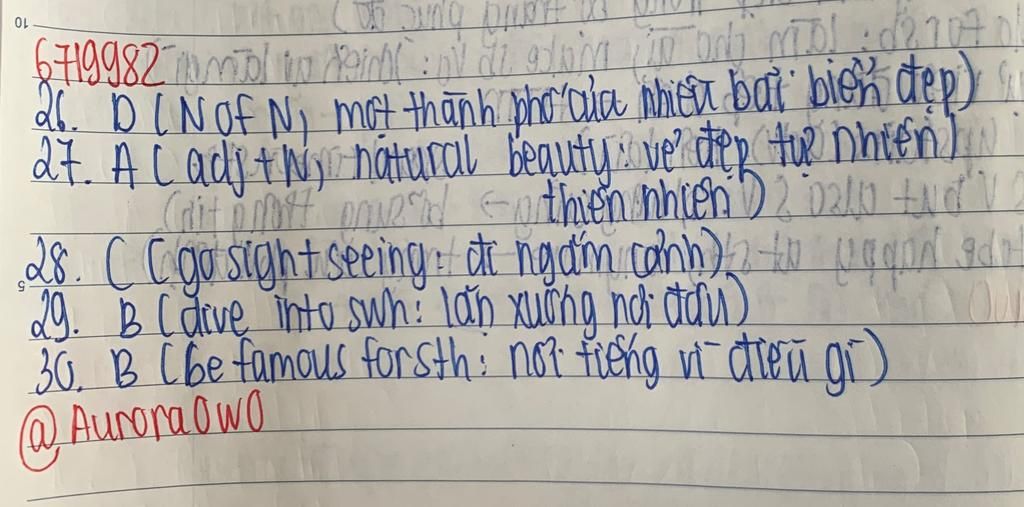 6719982
26. D (N of N, một thành phố của nhiều bãi biển đẹp)
27. A (adj + N, natural beauty: vẻ đẹp tự nhiên)
thiên nhiên)
28. C (go sightseeing: đi ngắm cảnh)
29. B (dive into swh: lặn xuống nơi đâu)
30. B (be famous for sth: nổi tiếng vì điều gì)
@AuroraOwO